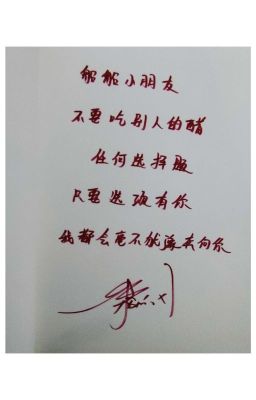 船船小朋友
不要吃别人的醋
任何选择题
只要选项有你
我都会毫不犹豫奔向你